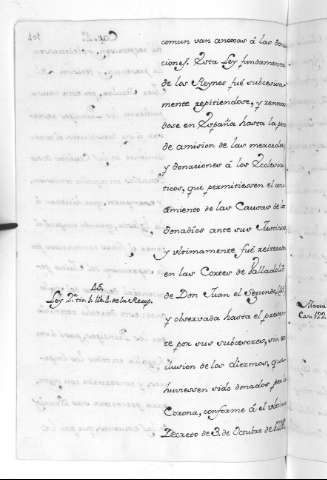 comun van anexas á las dona
ciones. Esta Ley fundamental
de los Reynos fué sucesiva
mente repitiendose, y renovan
dose en España hasta la
de amision de las mercedes,
y donaciones á los Eclesias
ticos, que permitiessen el cono
cimiento de las Causas de lo
donadíos ante sus Justicias
y ultimamente fué
en las Cortes de Valladolid
de Don Juan el Segundo,
y observada hasta el presen
te por sus subcesores, sin ex
clusion de los diezmos, que
huviessen sido donados por la
Corona, conforme á el
Decreto de 3. de Octubre de
15.
de la Recop.